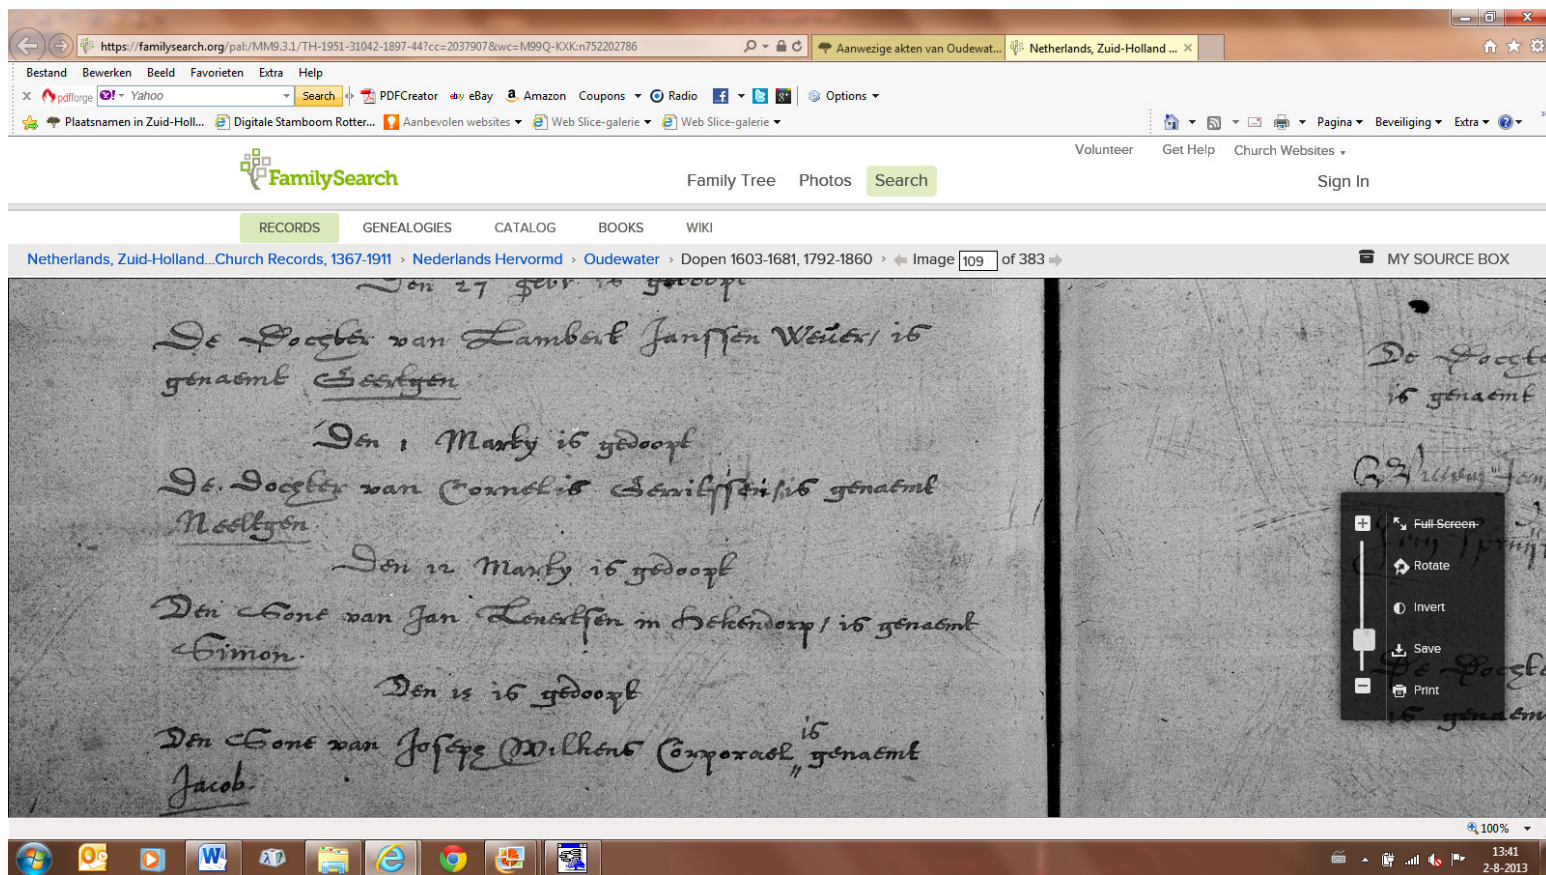 https://familysearch.org/pal:/MM9.3.1/TH-1951-31042-1897-44?cc=2037907&wc=M99Q-KXK:n752202786
Aanwezige akten van Oudewat...
Netherlands, Zuid-Holland ...
Bestand Bewerken Beeld Favorieten Extra Help
pdfforge Yahoo Search PDFCreator eBay Amazon Coupons Radio Options
Plaatsnamen in Zuid-Holl... Digitale Stamboom Rotter... Aanbevolen websites Web Slice-galerie Web Slice-galerie Pagina Beveiliging Extra
Volunteer Get Help Church Websites
FamilySearch Family Tree Photos Search Sign In
RECORDS GENEALOGIES CATALOG BOOKS WIKI
Netherlands, Zuid-Holland...Church Records, 1367-1911 › Nederlands Hervormd › Oudewater › Dopen 1603-1681, 1792-1860 › Image 109 of 383 MY SOURCE BOX
Den 27 febr is gedoopt
De Dochter van Lambert Janssen Wever / is
genaemt Geertgen
Den 1 Marty is gedoopt
De Dochter van Cornelis Gerritssen / is genaemt
Neeltgen
Den 12 Marty is gedoopt
Den Sone van Jan Lenertsen in Hekendorp / is genaemt
Simon.
Den 15 is gedoopt
Den Sone van Joseph Wilkens Corporael is genaemt
Jacob.
De Dochte
is genaemt
De Dochte
is genaem
Full Screen
Rotate
Invert
Save
Print
100%
13:41
2-8-2013